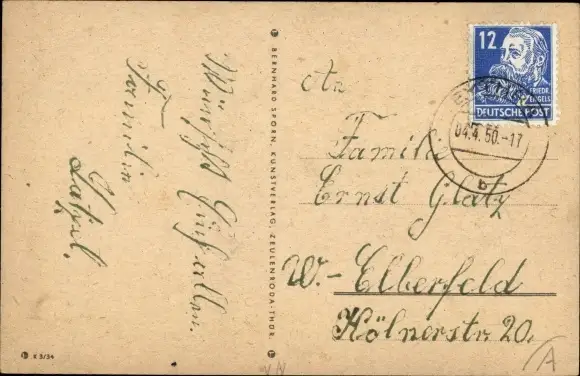 Wünscht Euch allen
Familie
An
Familie
Ernst Glatz
W.-Elberfeld
Kölnerstr. 20.
12
FRIEDR.
ENGELS
DEUTSCHE POST
04.4.50.-17
b
BERNHARD SPORN, KUNSTVERLAG, ZEULENRODA-THÜR.
K 5/34
A